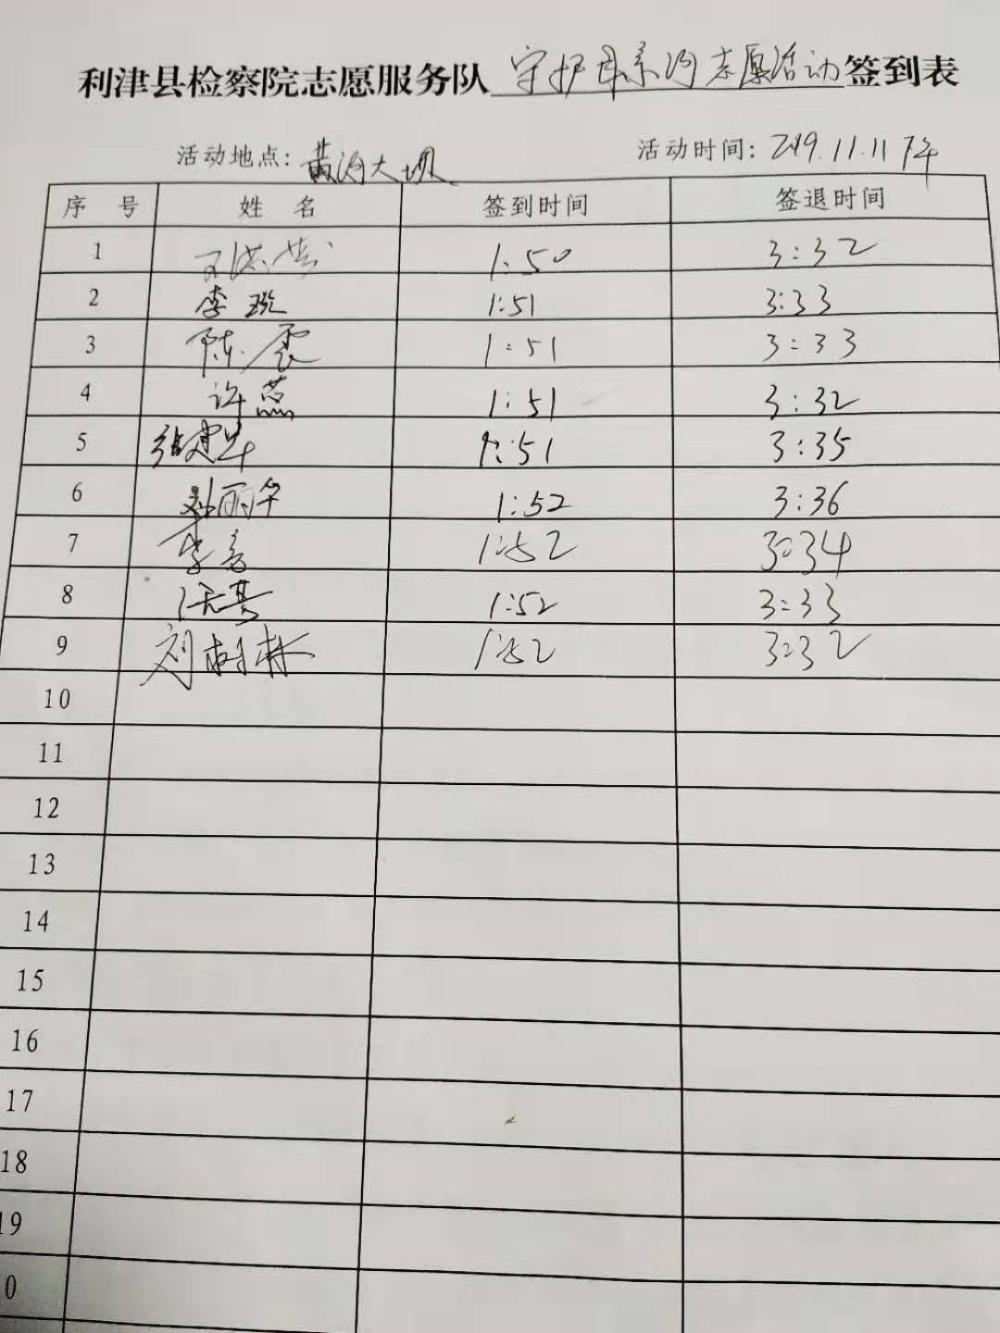 利津县检察院志愿服务队 守护母亲河志愿活动 签到表
活动地点: 黄河大坝 活动时间: 2019.11.11下午
序 号 姓 名 签到时间 签退时间
1 1:50 3:32
2 李 3:33 1:51
3 陈震 1:51 3:33
4 许燕 1:51 3:32
5 张建华 1:51 3:35
6 孙丽华 1:52 3:36
7 1:52 3:34
8 1:52 3:33
9 刘树林 1:52 3:32
10
11
12
13
14
15
16
17
18
19
0